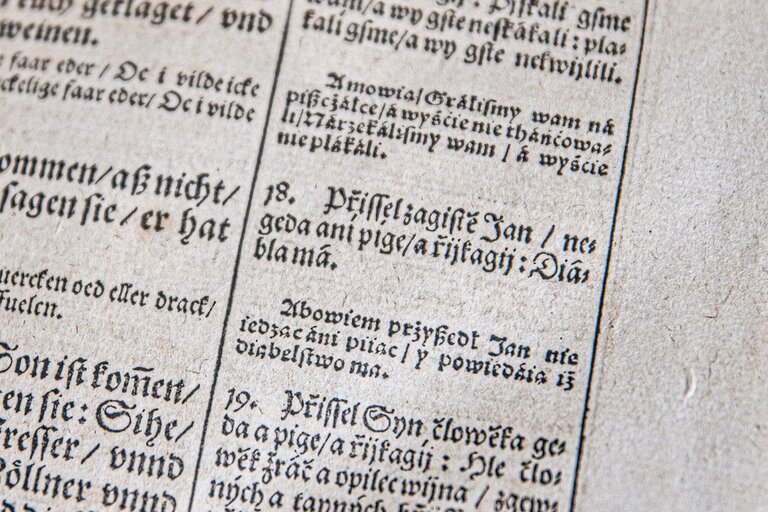 geklaget / vnd
weinen.
faar eder / De i vilde icke
faar eder / De i vilde
kommen / aß nicht /
sagen sie / er hat
oed eller drack /
Son ist kom̃en /
sie: Sihe /
vnnd
Zöllner vnnd
kali gsme / a wy gste neskákali : pla⸗
kali gsme / a wy gste nekwijlili.
A mowia / Gráliſmy wam ná
piſzczálce / á wyście nie tháńcowa⸗
li / Nárzekáliſmy wam / á wyście
nie plákáli.
18. Přiſſel zagiſtě Jan / ne⸗
geda ani pige / a řijkagij : Diá⸗
bla má.
Abowiem przyſzedł Jan nie
iedząc áni piiąc / y powiedáią iż
diabelſtwo ma.
19. Přiſſel Syn člowěka ge⸗
da a pige / a řijkagij : Hle člo⸗
wěk žráč a opilec wijna / zgew⸗
ných a